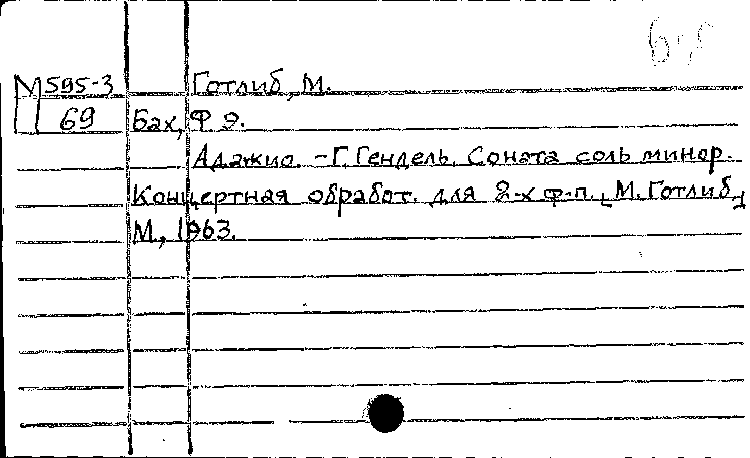 М 595-3 Готлиб, М.
69 Бах, Ф Э.
Адажио. - Г. Гендель. Соната соль минор.
Концертная обработ. для 2-х ф-п. [М. Готлиб.]
М., 1963.